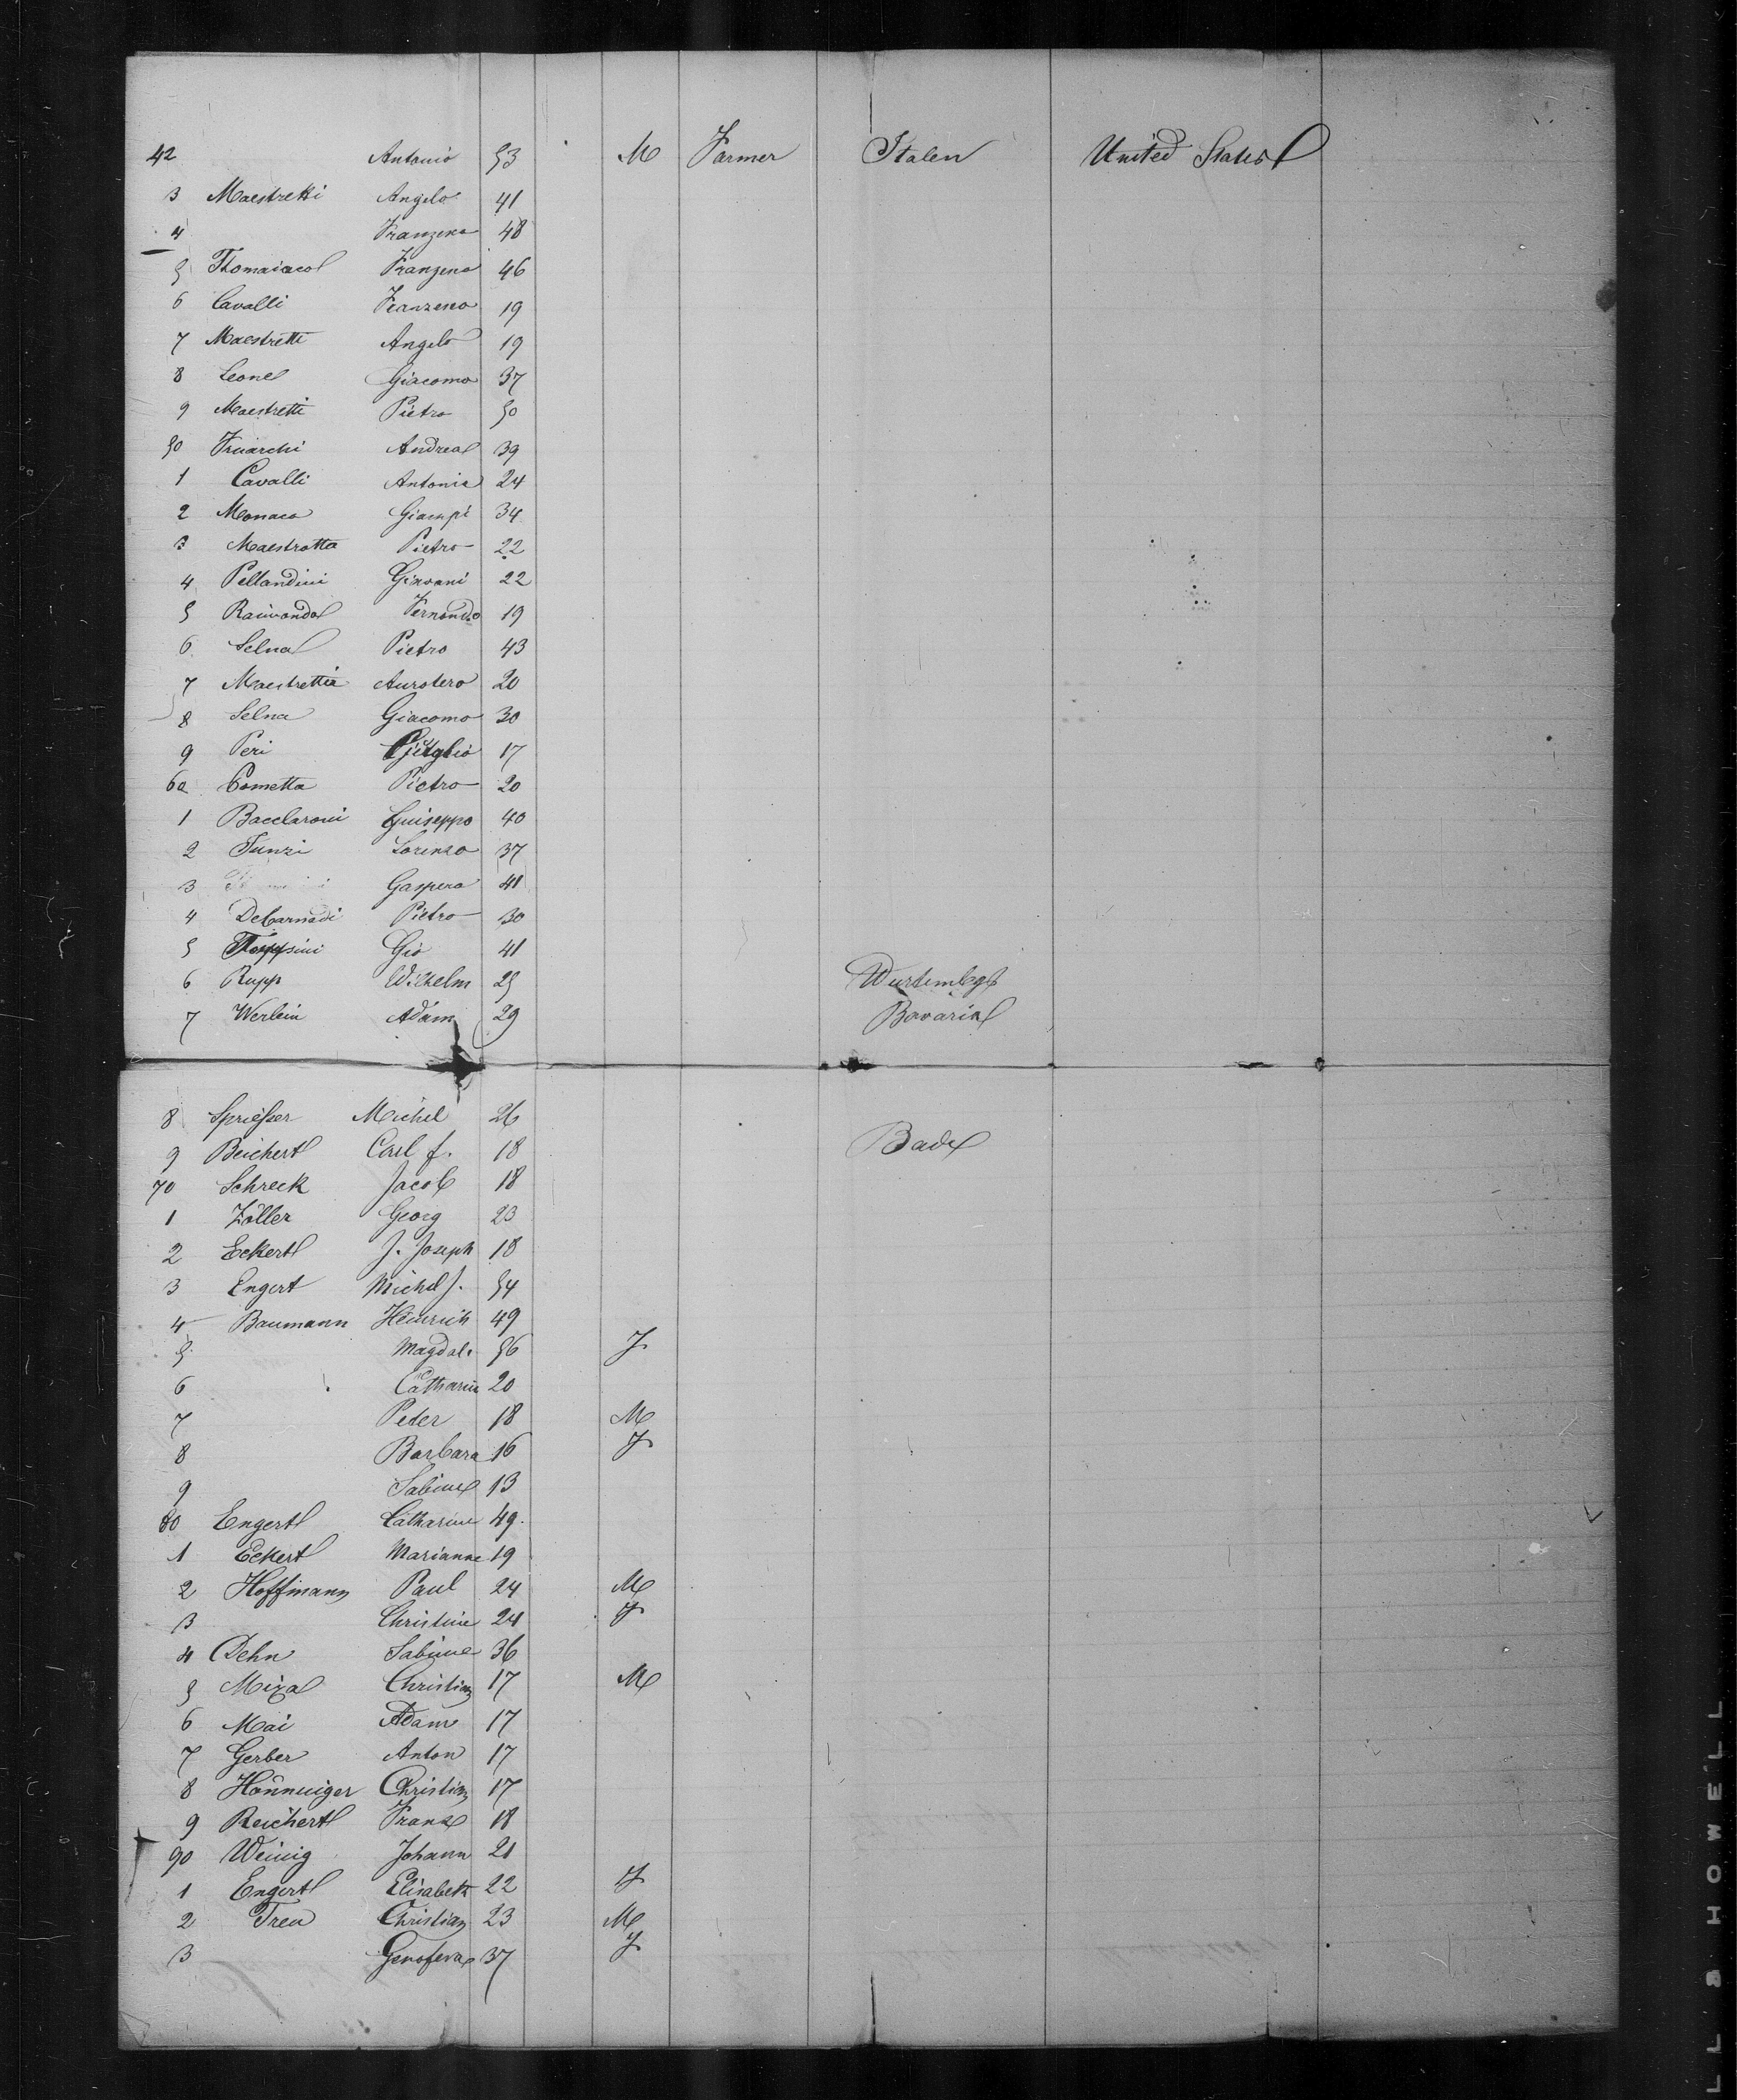 42 Antonio 53 M Farmer Italen United States
3 Maestretti Angelo 41
4 Franzeno 48
5 Thomaiacol Franzeno 46
6 Cavalli Franzesco 19
7 Maestretti Angelo 19
8 Leone Giacomo 37
9 Maestretti Pietro 50
50 Andrea 39
1 Cavalli Antonio 24
2 Monaco Giampi 34
3 Maestrotta Pietro 22
4 Pellandini Giovani 22
5 Raimonda Fernando 19
6 Selna Pietro 43
7 Maestrettia Aurotero 20
8 Selna Giacomo 30
9 Peri 17
60 Cometta Pietro 20
1 Bacclaroni Guiseppo 40
2 Tunzi Lorenzo 37
3 Gaspero 41
4 Debarnadi Pietro 30
5 Gio 41
6 Rupp Wilhelm 25 Wurtembg
7 Werlein Adam 29 Bavaria
8 Sprießer Michel 26
9 Beichert Carl f. 18 Bade
70 Schreck Jacob 18
1 Zöller Georg 23
2 Eckert J. Joseph 18
3 Engert Michel J. 54
4 Baumann Heinrich 49
5 Magdal. 56 F
6 Catharin 20
7 Peter 18 M
8 Barbara 16 F
9 Sabine 13
80 Engert Catharine 49
1 Eckert Marianne 19
2 Hoffmann Paul 24 M
3 Christine 24 F
4 Dehn Sabine 36
5 Miza Christian 17 M
6 Mai Adam 17
7 Gerber Anton 17
8 Hönninger Christian 17
9 Reichert Franz 18
90 Weinig Johann 21
1 Engert Elisabeth 22 F
2 Treu Christian 23 M
3 Genofeva 37 F
LL & HOWELL